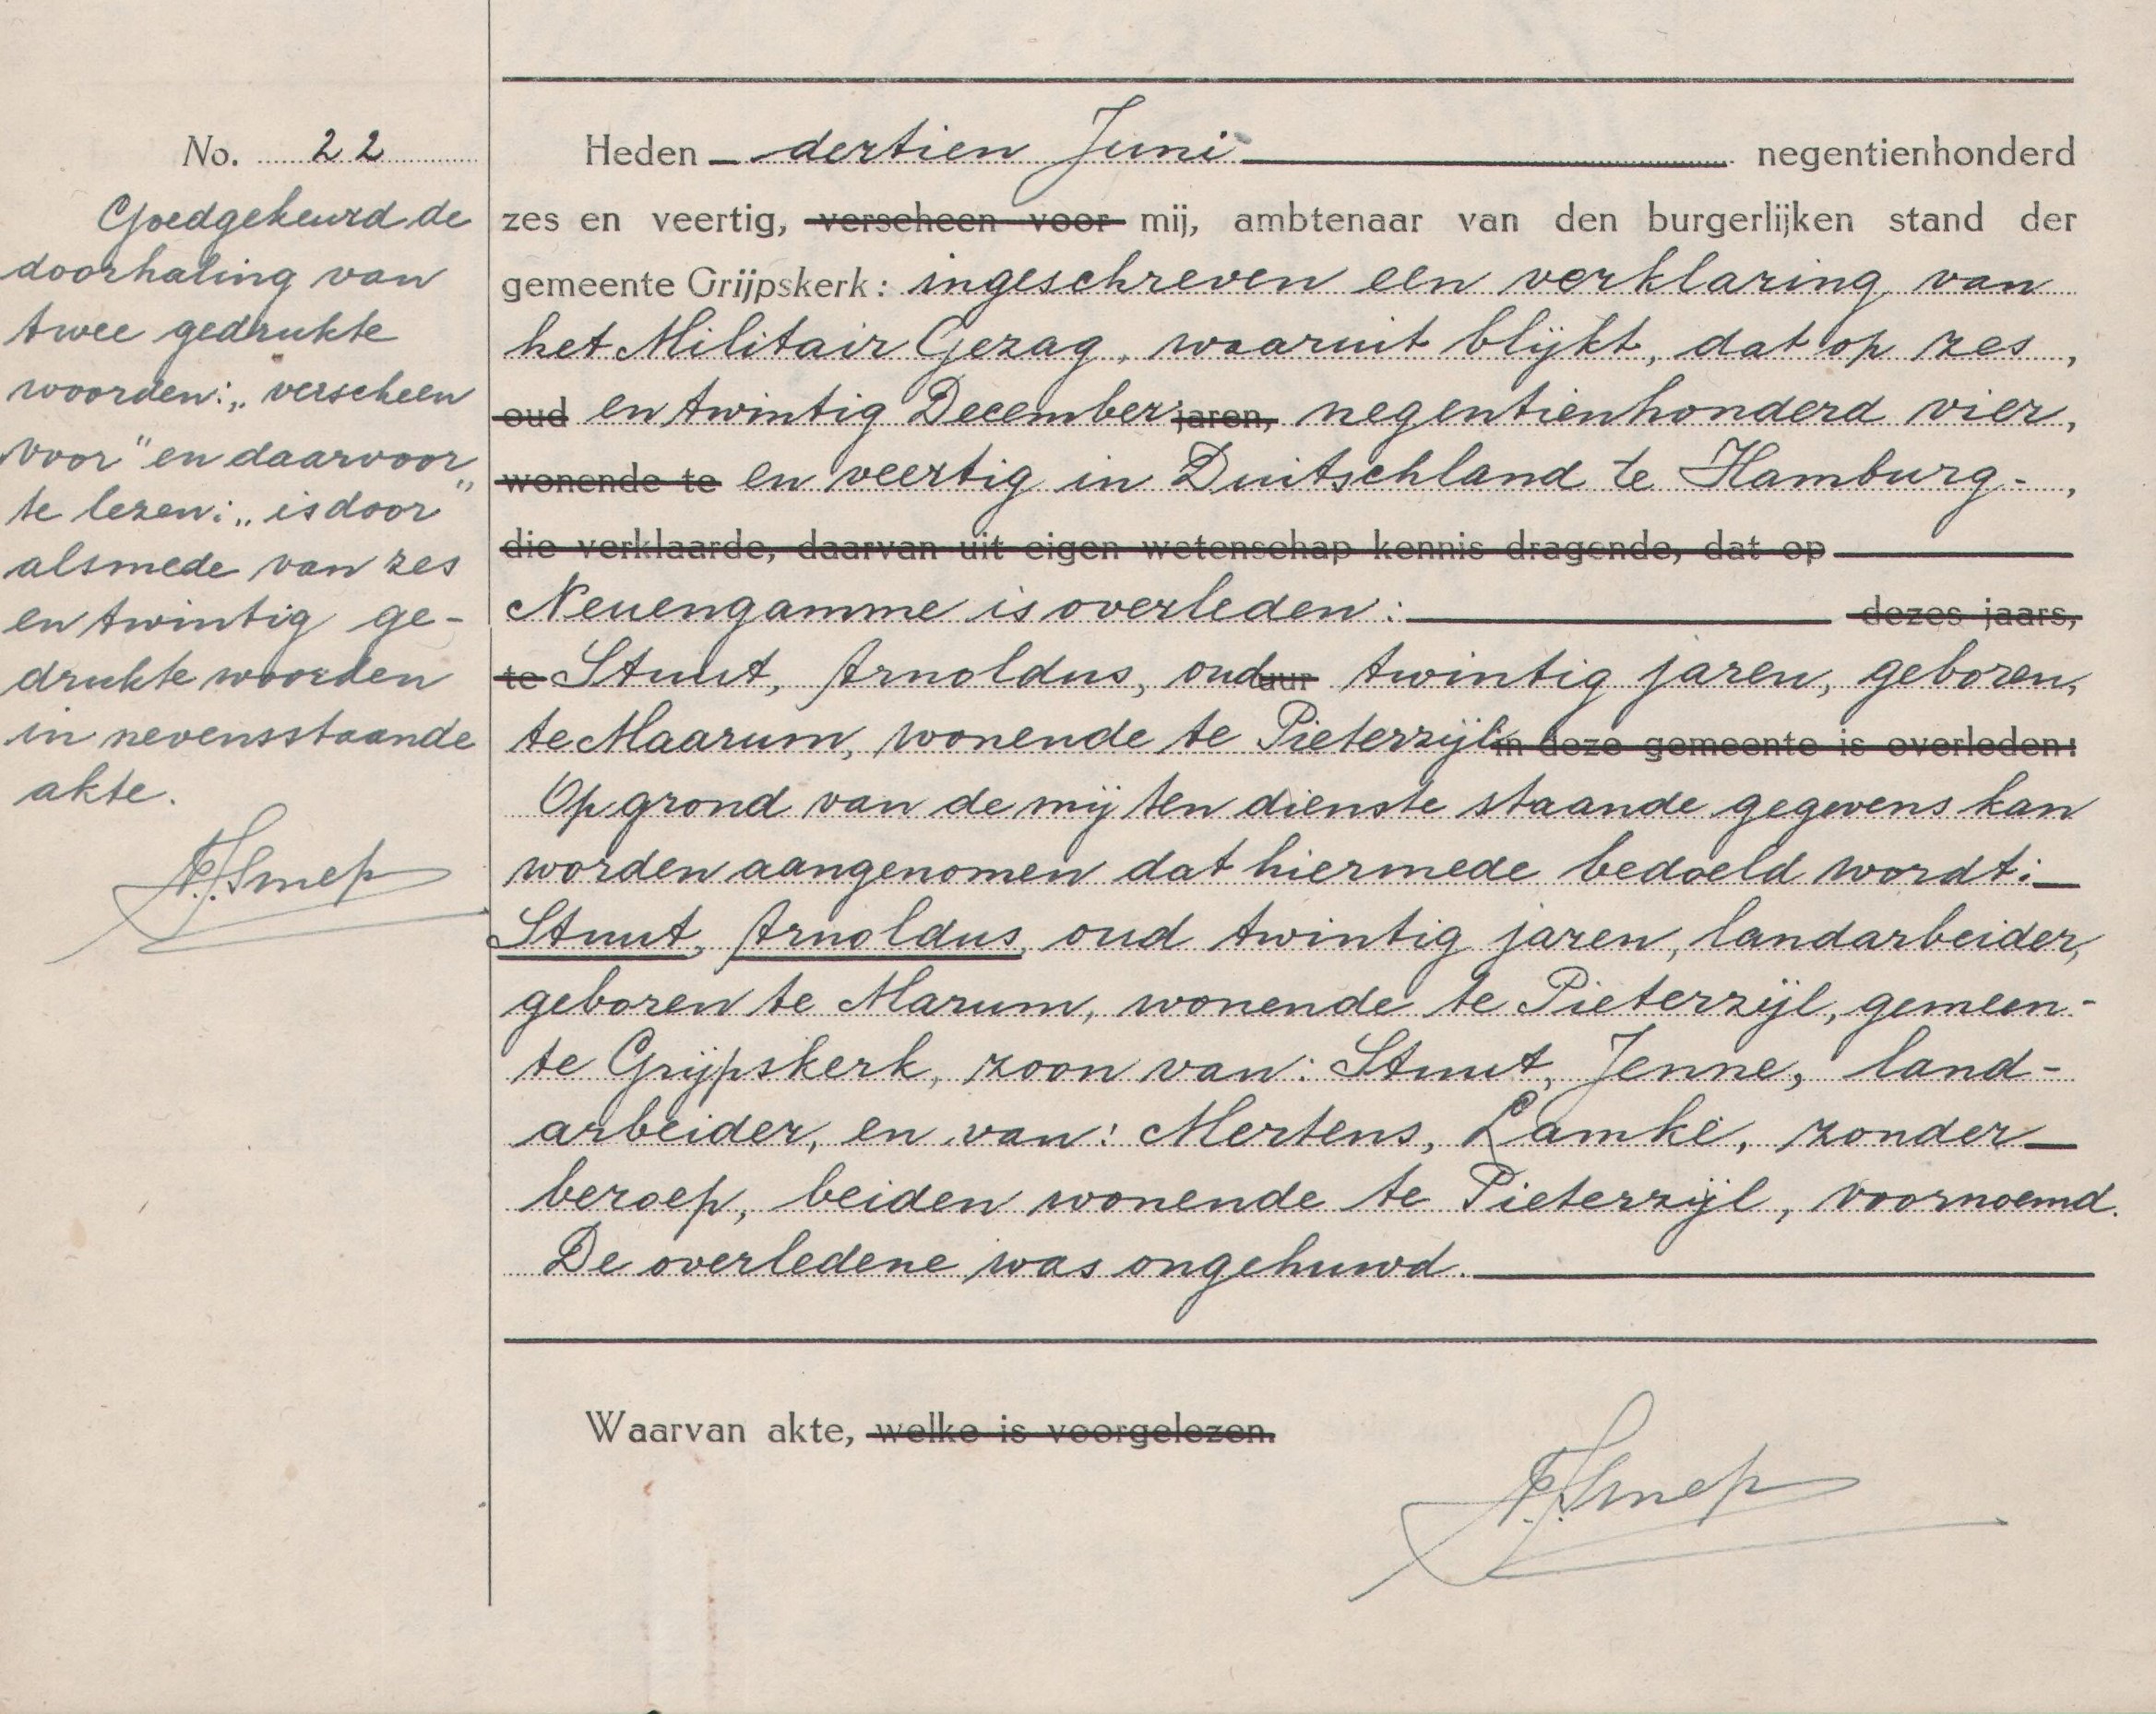 No. 22
Goedgekeurd de
doorhaling van
twee gedrukte
woorden: „verscheen
voor" en daarvoor
te lezen: „is door"
alsmede van zes
en twintig ge-
drukte woorden
in nevensstaande
akte.
Heden dertien Juni negentienhonderd
zes en veertig, verscheen voor mij, ambtenaar van den burgerlijken stand der
gemeente Grijpskerk: ingeschreven een verklaring van
het Militair Gezag, waaruit blijkt, dat op zes,
oud en twintig December jaren, negentienhonderd vier,
wonende te en veertig in Duitschland te Hamburg-,
die verklaarde, daarvan uit eigen wetenschap kennis dragende, dat op
Neuengamme is overleden: dezes jaars,
te Stuut, Arnoldus, oud uur twintig jaren, geboren,
te Maarum, wonende te Pieterzijl in deze gemeente is overleden:
Op grond van de mij ten dienste staande gegevens kan
worden aangenomen dat hiermede bedoeld wordt:
Stuut, Arnoldus, oud twintig jaren, landarbeider,
geboren te Marum, wonende te Pieterzijl, gemeen-
te Grijpskerk, zoon van: Stuut, Jenne, land-
arbeider, en van: Mertens, Lamke, zonder
beroep, beiden wonende te Pieterzijl, voornoemd.
De overledene was ongehuwd.
Waarvan akte, welke is voorgelezen.